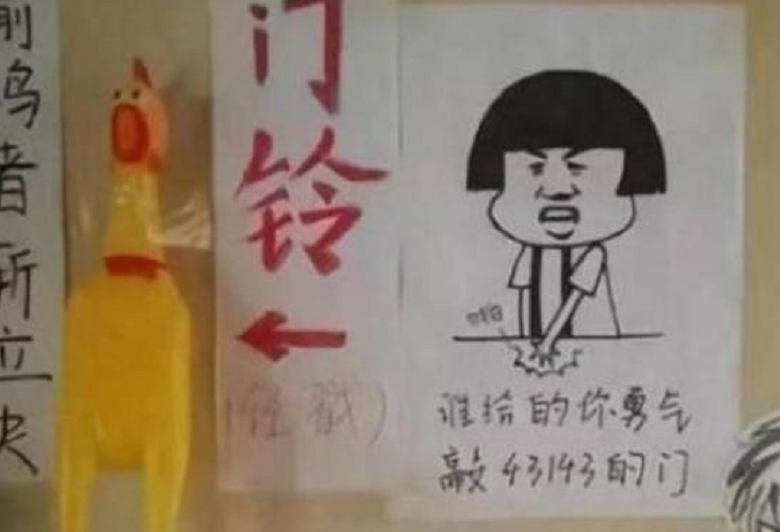 鸣者斩立决
门铃
(轻戳)
啪
谁给的你勇气
敲43143的门